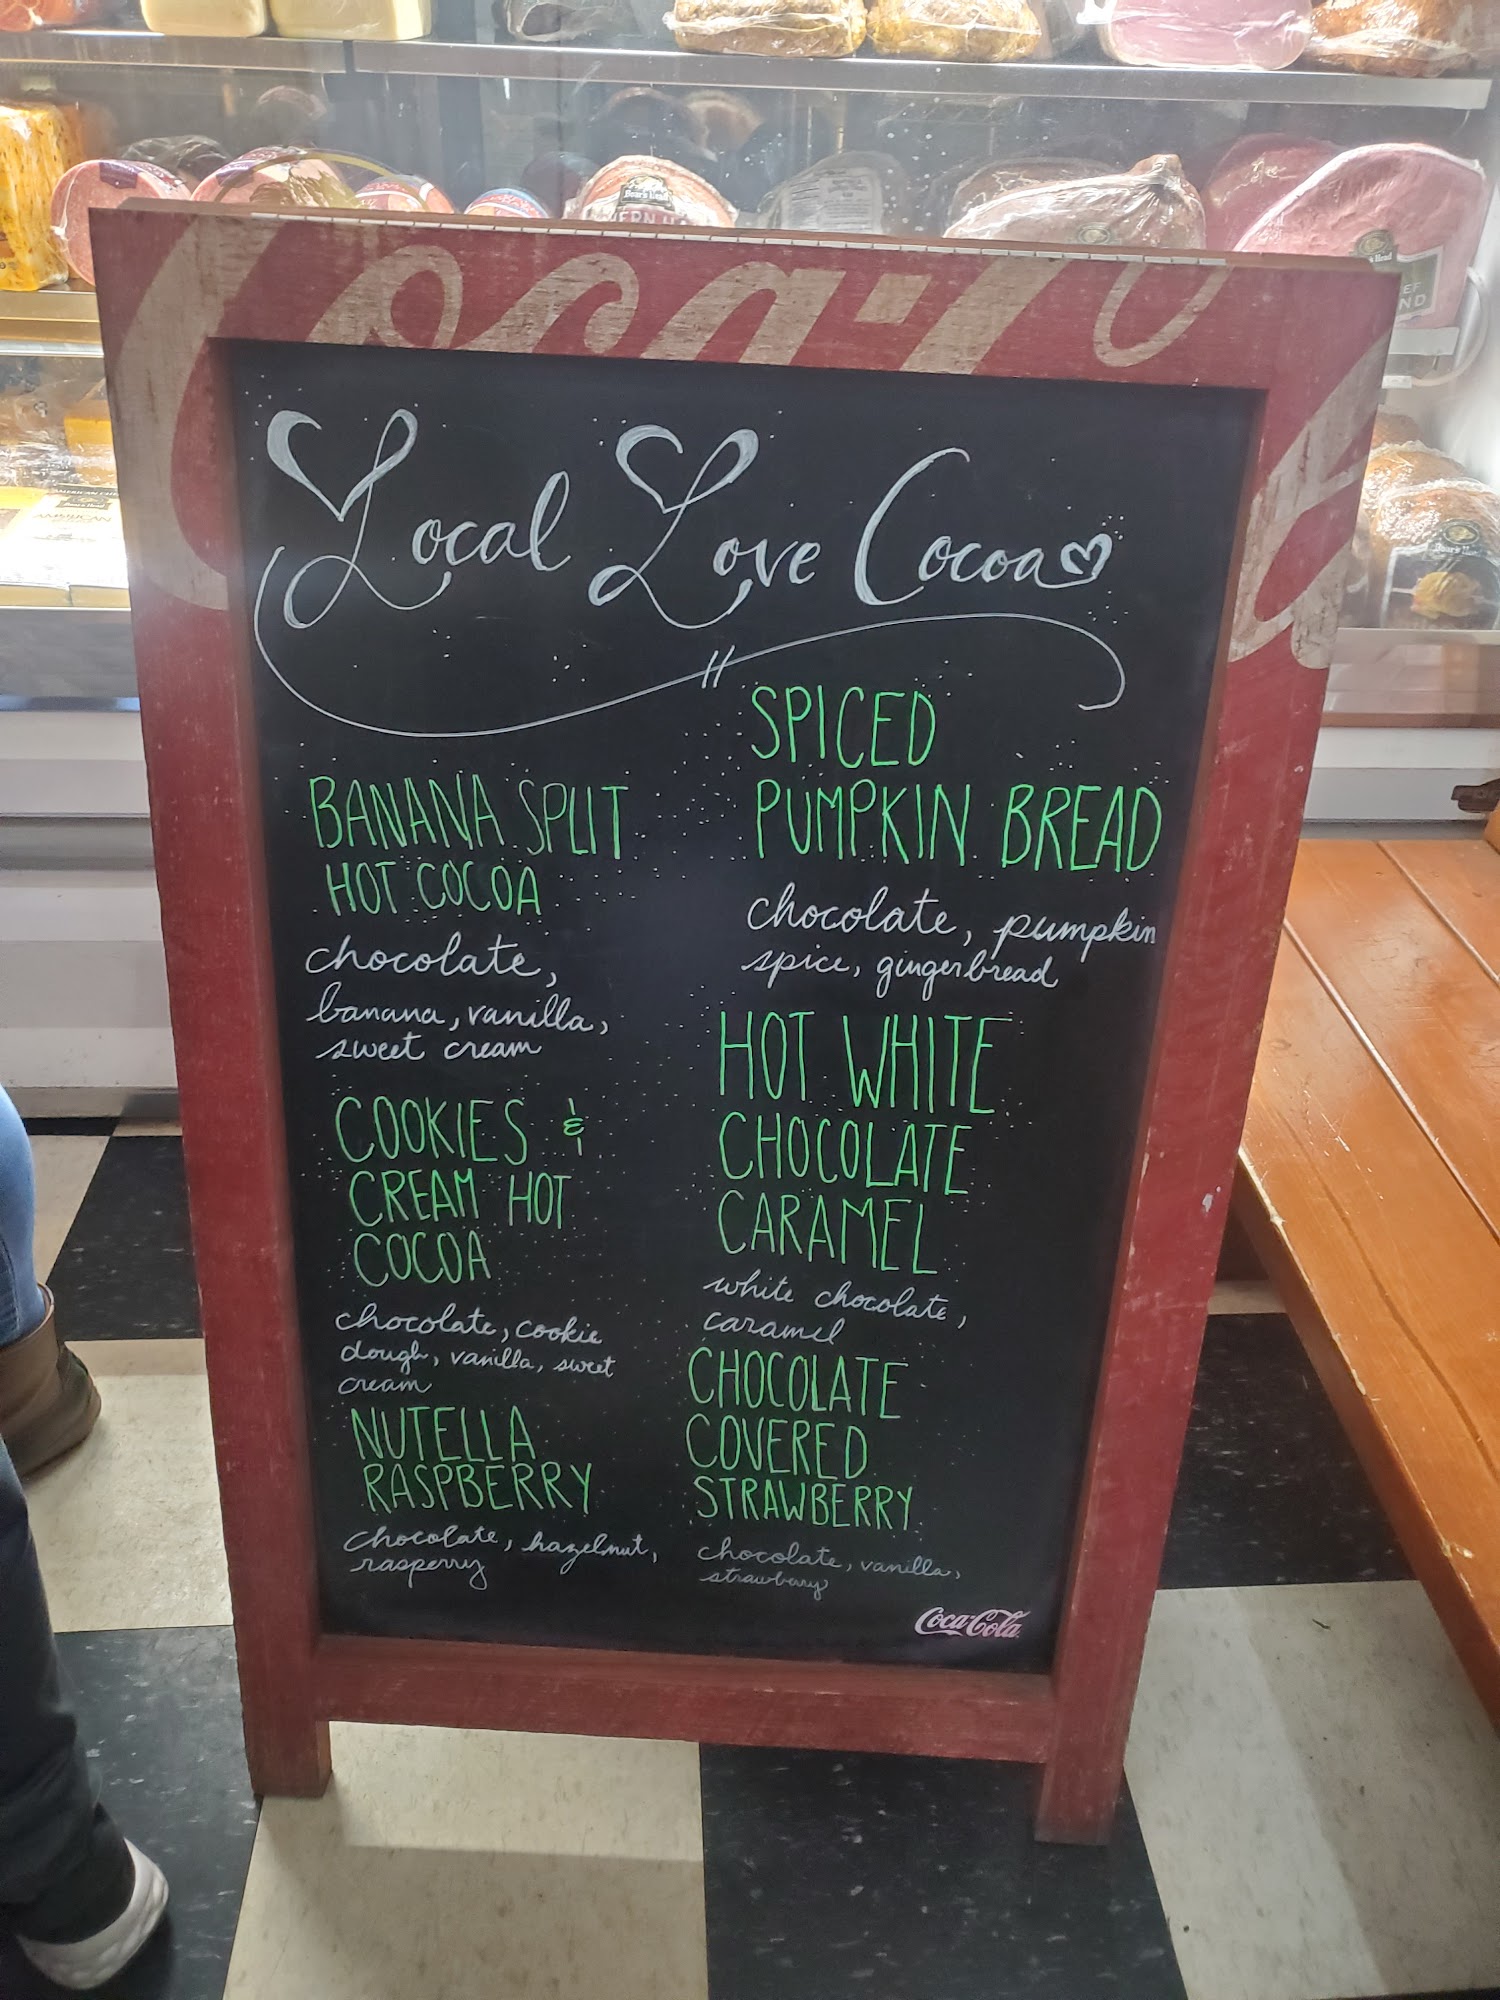 Boar's Head
Coca-Co
Local Love Cocoa
BANANA SPLIT
HOT COCOA
chocolate,
banana, vanilla,
sweet cream
COOKIES &
CREAM HOT
COCOA
chocolate, cookie
dough, vanilla, sweet
cream
NUTELLA
RASPBERRY
chocolate, hazelnut,
rasperry
SPICED
PUMPKIN BREAD
chocolate, pumpkin
spice, gingerbread
HOT WHITE
CHOCOLATE
CARAMEL
white chocolate,
caramel
CHOCOLATE
COVERED
STRAWBERRY
chocolate, vanilla,
strawberry
Coca-Cola
AMERICAN